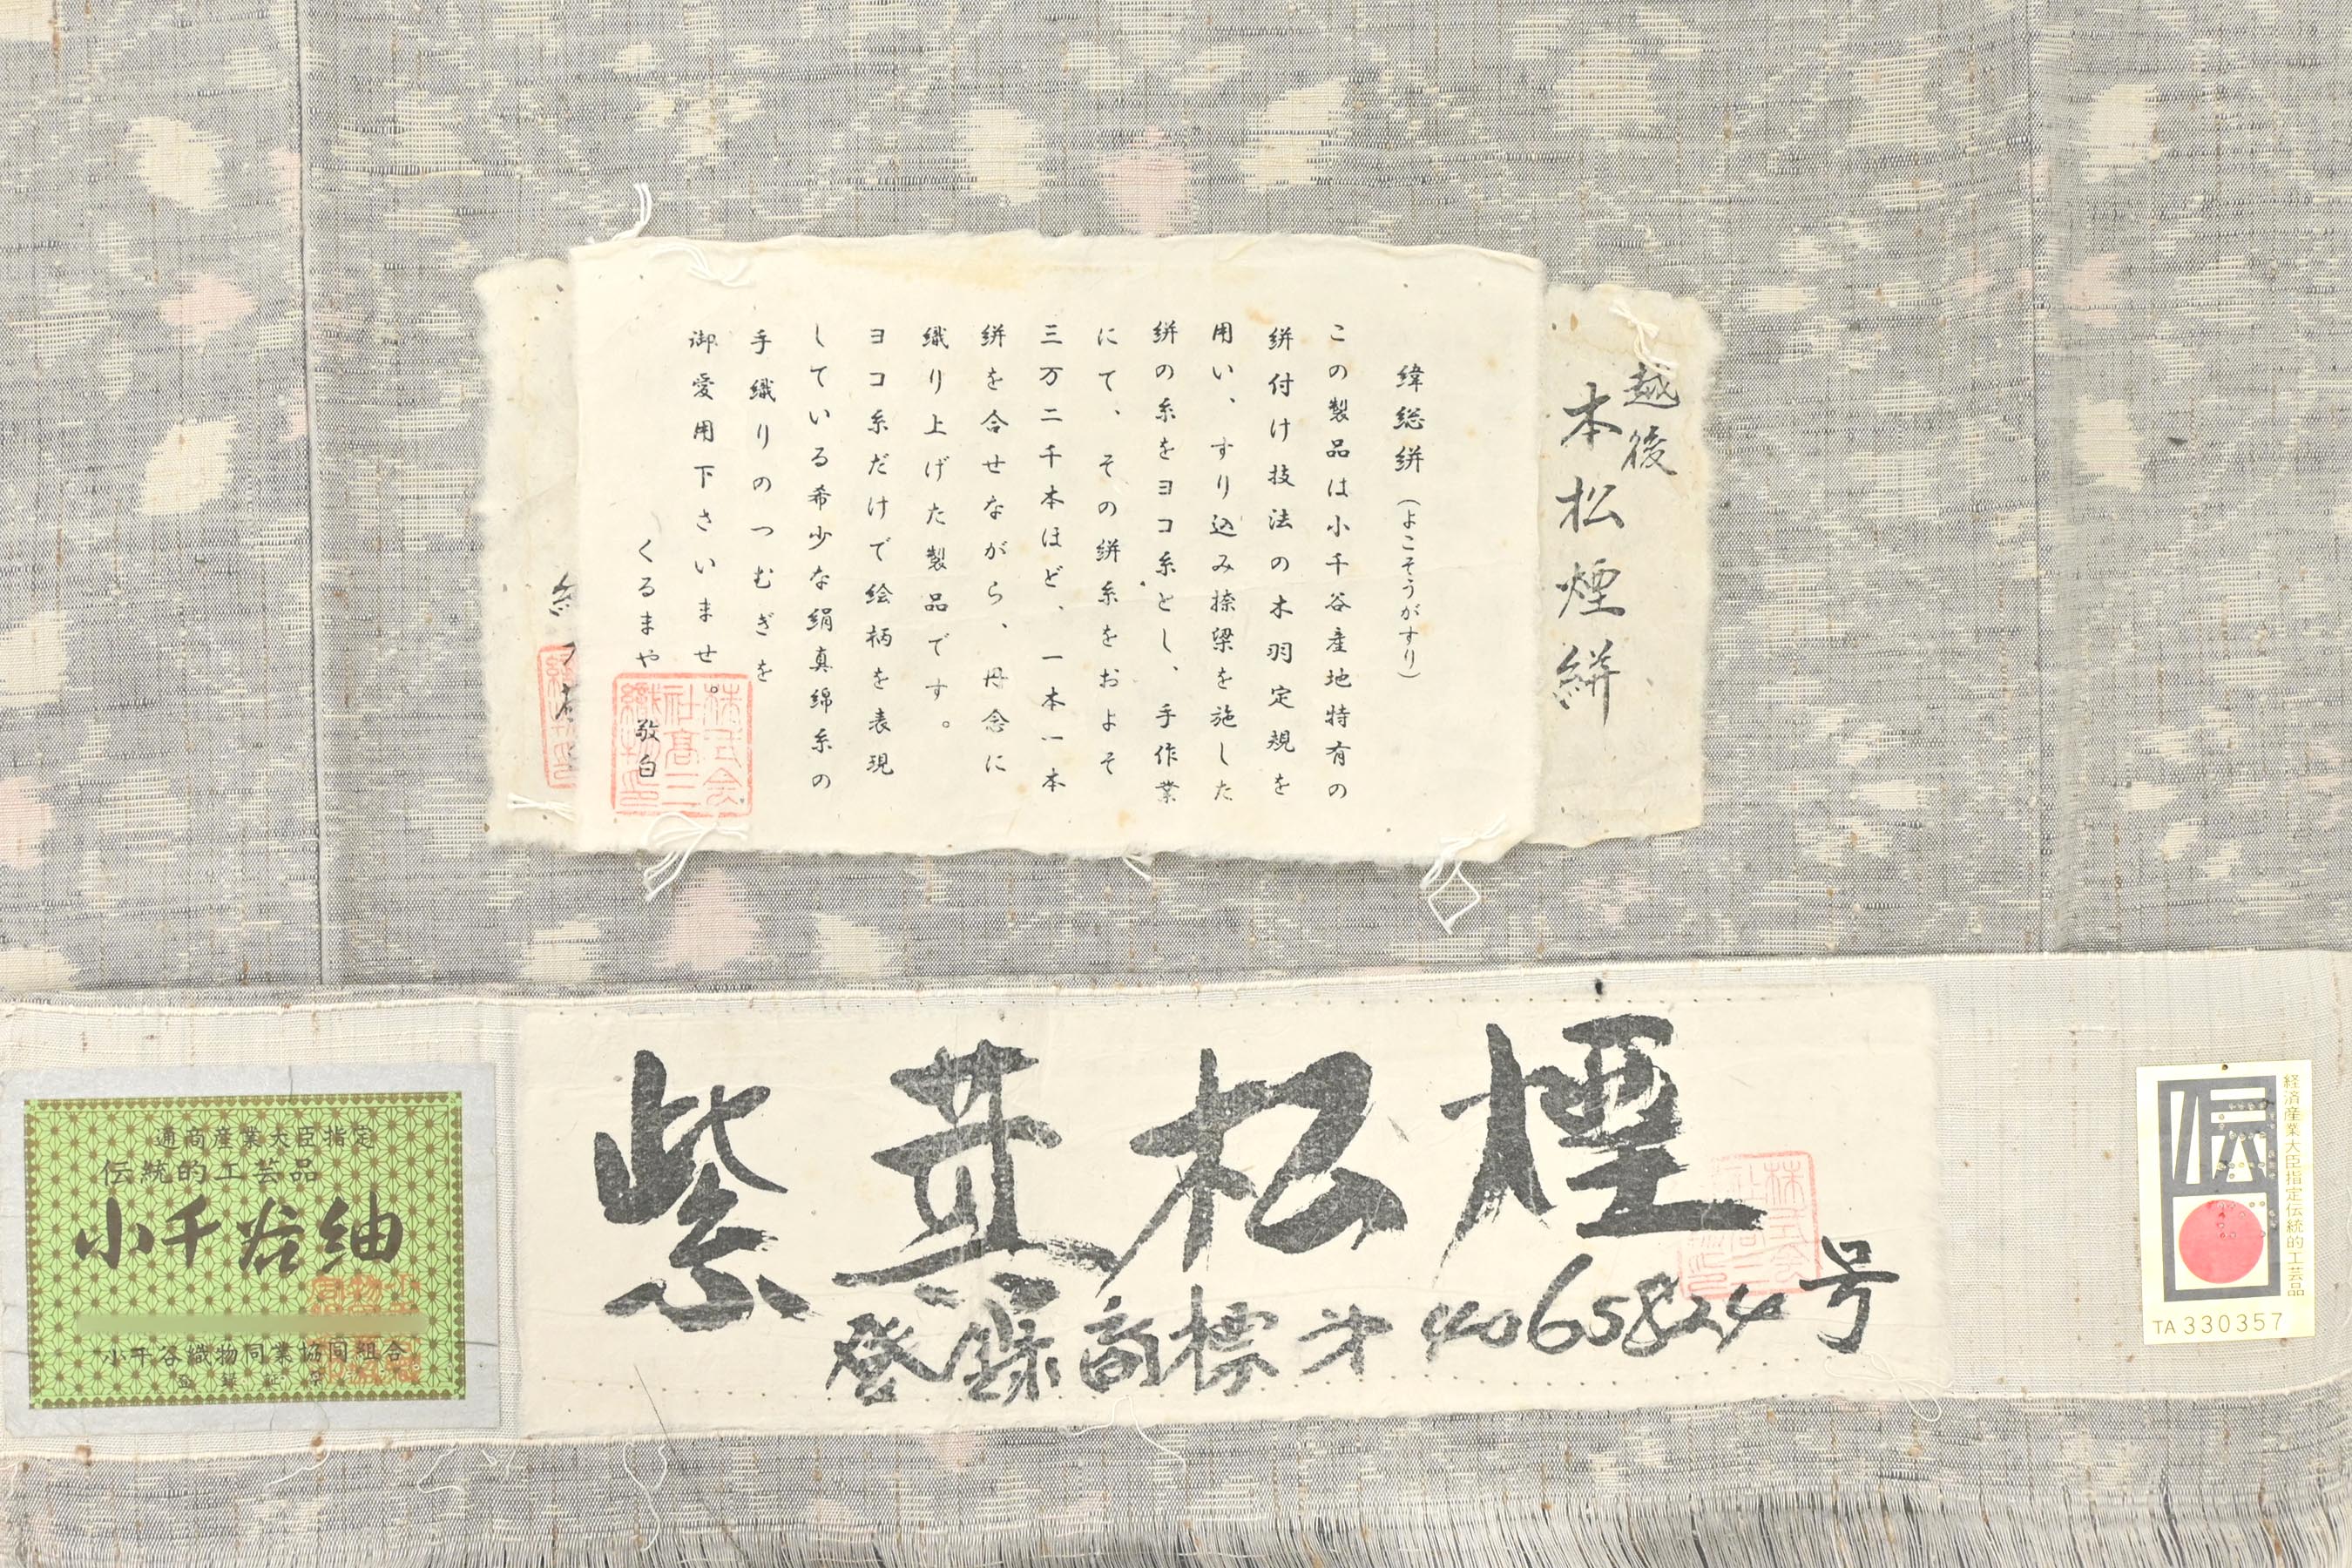 越後
本松煙絣
緯総絣(よこそうがすり)
この製品は小千谷産地特有の
絣付け技法の木羽定規を
用い、すり込み捺染を施した
絣の糸をヨコ糸とし、手作業
にて、その絣糸をおよそ
三万二千本ほど、一本一本
絣を合せながら、丹念に
織り上げた製品です。
ヨコ糸だけで絵柄を表現
している希少な絹真綿糸の
手織りのつむぎを
御愛用下さいませ。
くるまや 敬白
株式会社高三織物印
紫茣松煙
登録商標第4065824号
通商産業大臣指定
伝統的工芸品
小千谷紬
小千谷織物同業協同組合
伝
経済産業大臣指定伝統的工芸品
TA330357